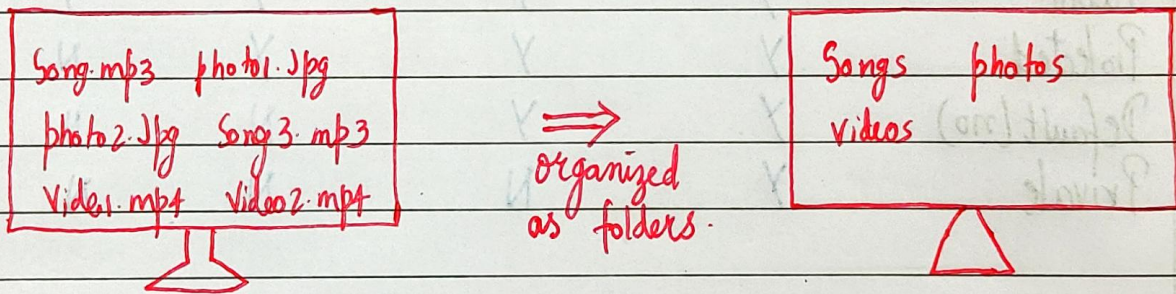 Song.mp3 photo1.Jpg
photo2.Jpg Song3.mp3
Vide1.mp4 Video2.mp4
⇒
organized
as folders.
Songs photos
videos